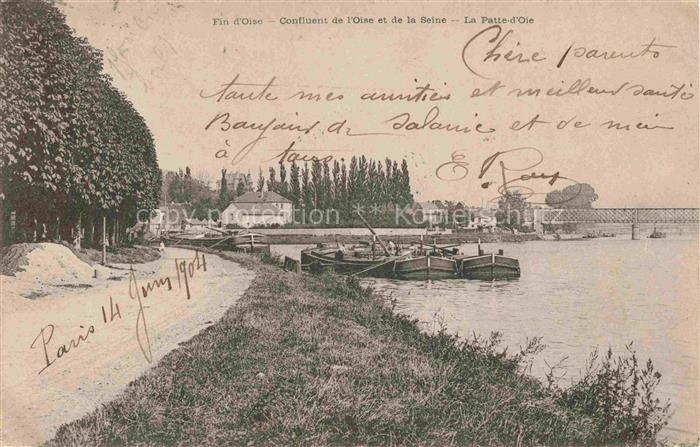 Fin d'Oise — Confluent de l'Oise et de la Seine — La Patte-d'Oie
Chère parents
toute mes amitiés et meilleur santé
Baujair de Salanie et de moi
à tous
E Roy
Paris 14 Juny 1904
copyright protected Kopierschutz